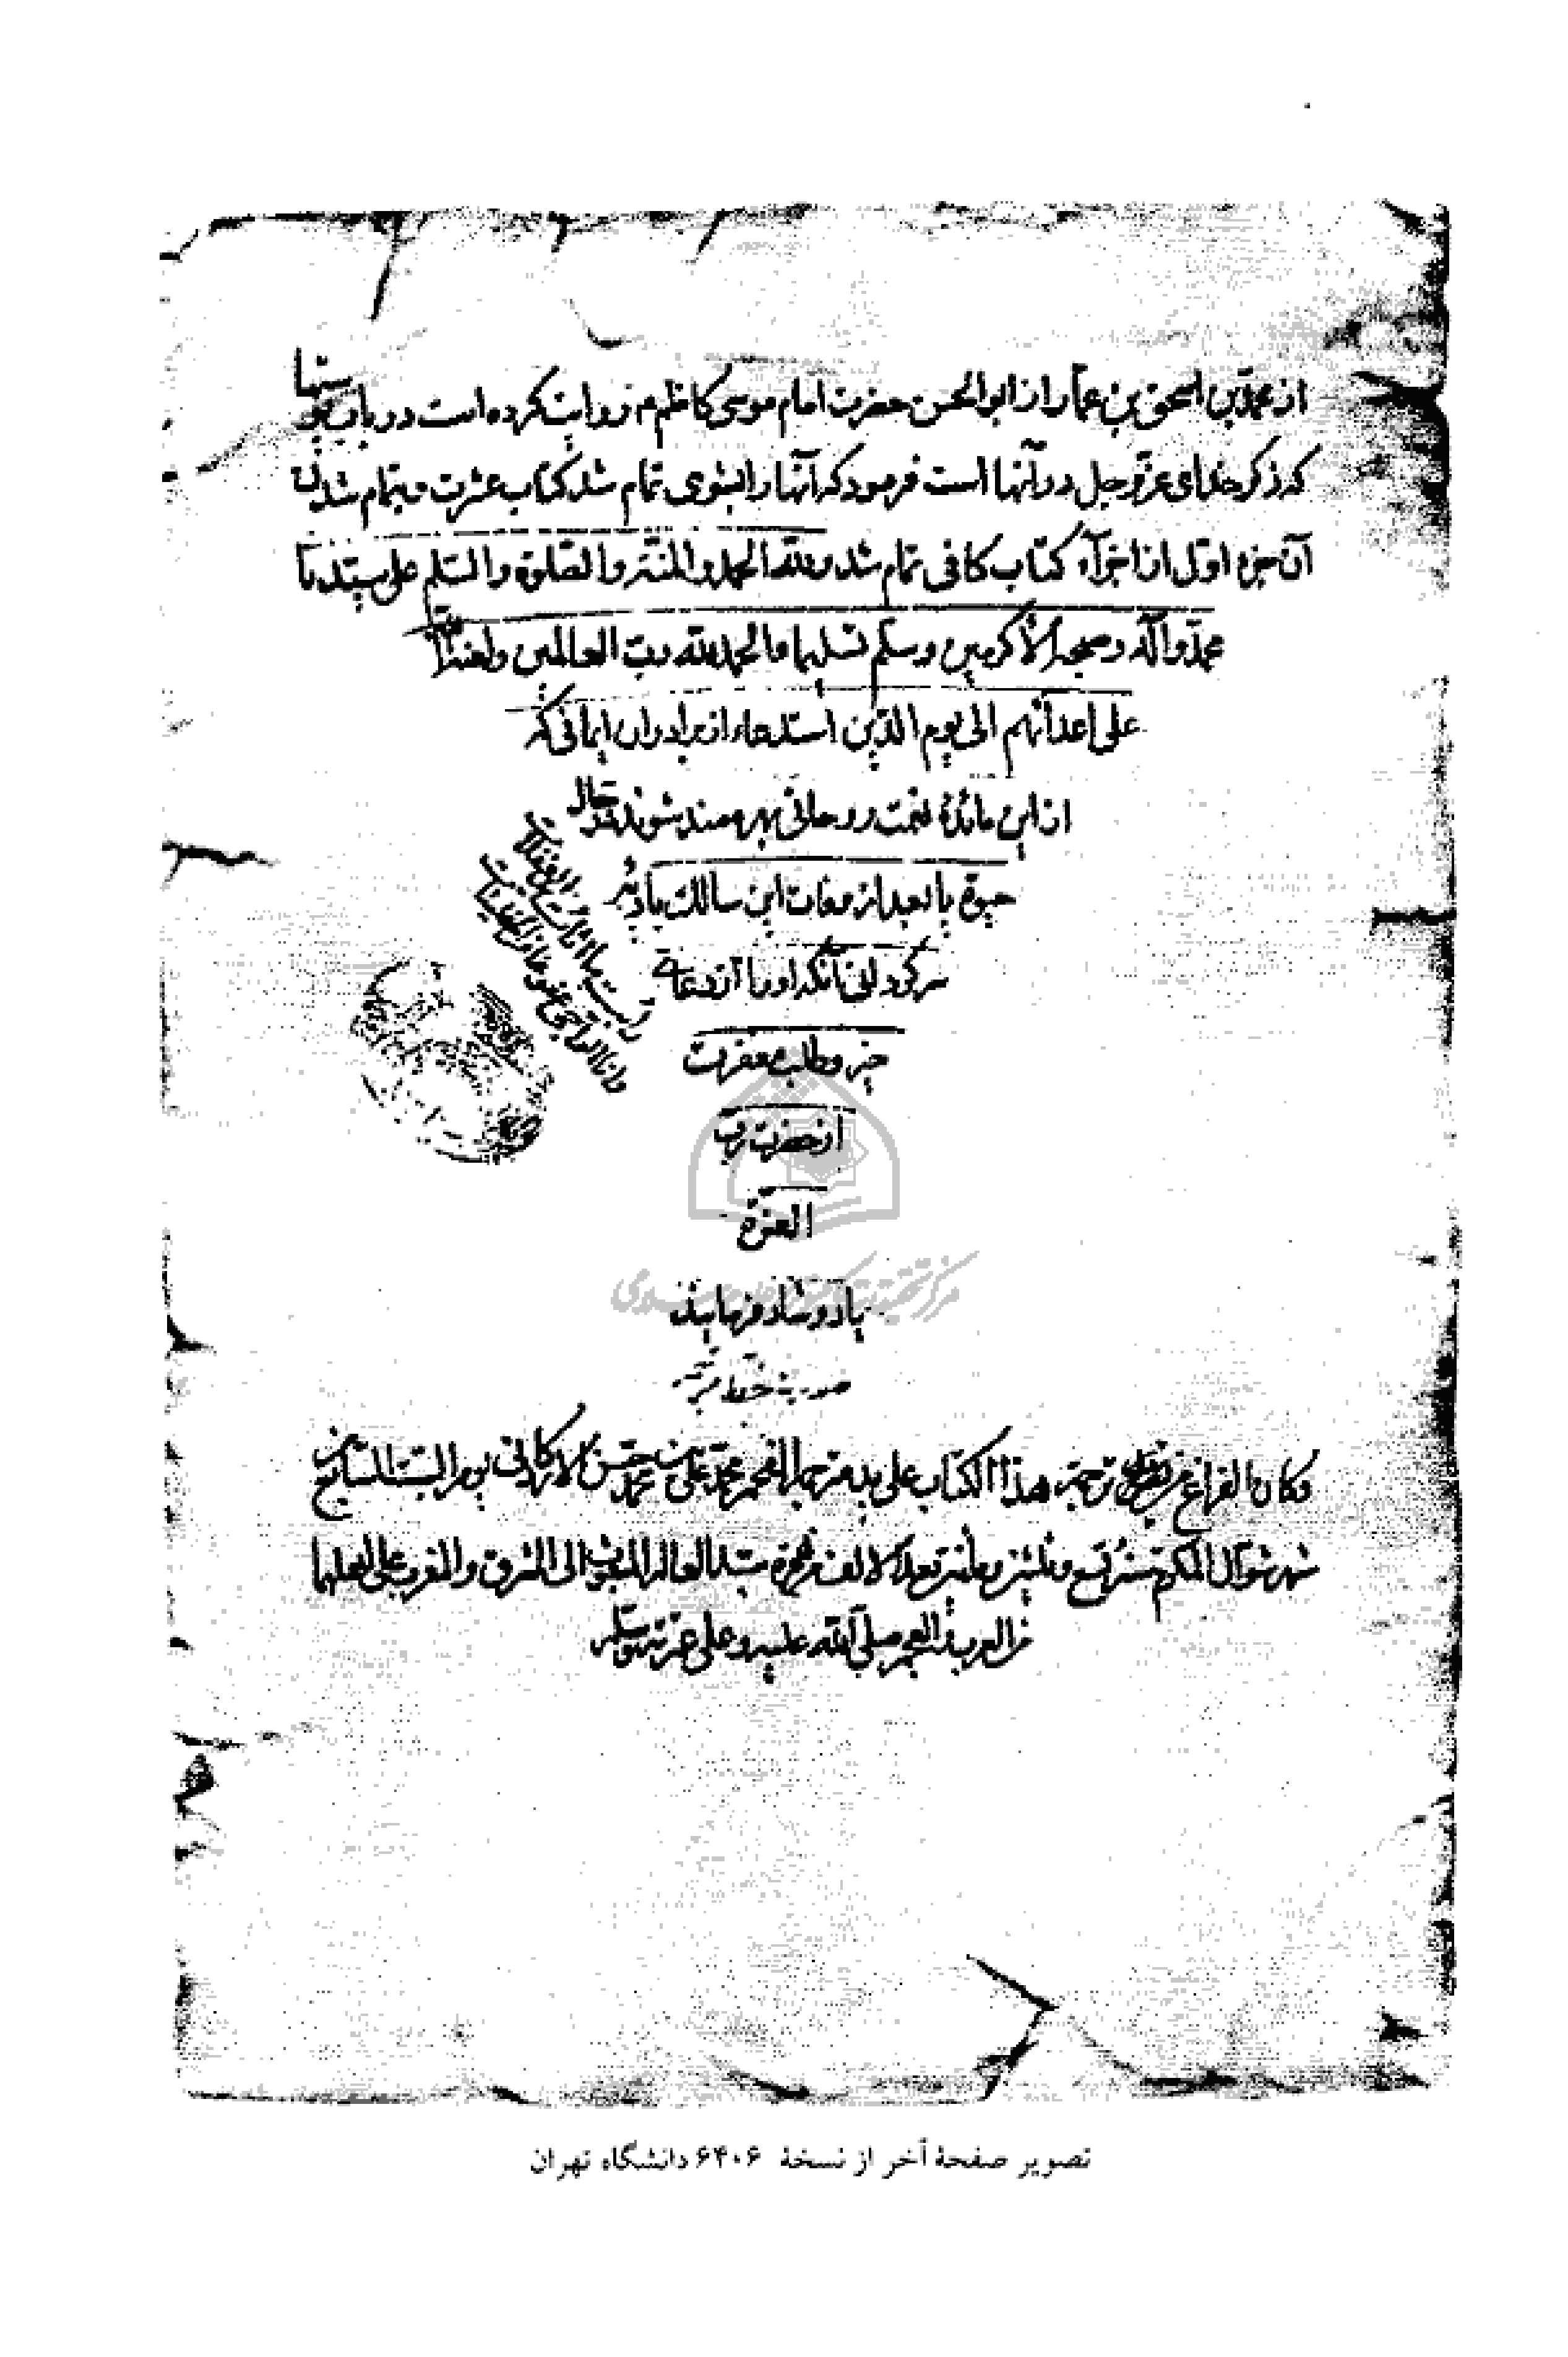 از محمد بن اسحق بن عمار از ابو الحسن حضرت امام موسی کاظم م روایت کرده است در باب
که ذکر خدای عز و جل در آنها است فرمود که آنها را بشوی تمام شد کتاب عشرت و بتمام شدن
آن جزء اول از اجزآء کتاب کافی تمام شد و لله الحمد و المنة و الصلوة و السلم علی سیدنا
محمد و آله و صحبه الاکرمین و سلم تسلیما و الحمد لله رب العالمین و لعنة الله
علی اعدائهم الی یوم الدین استدعاء از برادران ایمانی که
از این مائدهٔ نعمت روحانی بهره مند شوند در حال
حیوة یا بعد از وفات این سالک بادیهٔ
سرگردانی آنکه او را از دعای
خیر و طلب مغفرت
از حضرت رب
العزة
یاد و شاد فرمایند
و کان الفراغ من ترجمة هذا الکتاب علی ید مترجمه الفقیر محمد علی بن محمد حسن الاردکانی یوم السبت السابع
شهر شوال المکرم سنة تسع و ثلثین و مأتین بعد الالف من هجرة سید العالم المبعوث الی الشرق و المغرب علی اهلهما
من العرب و العجم صلی الله علیه و علی عترته و سلم
تصویر صفحهٔ آخر از نسخهٔ ۶۴۰۶ دانشگاه تهران